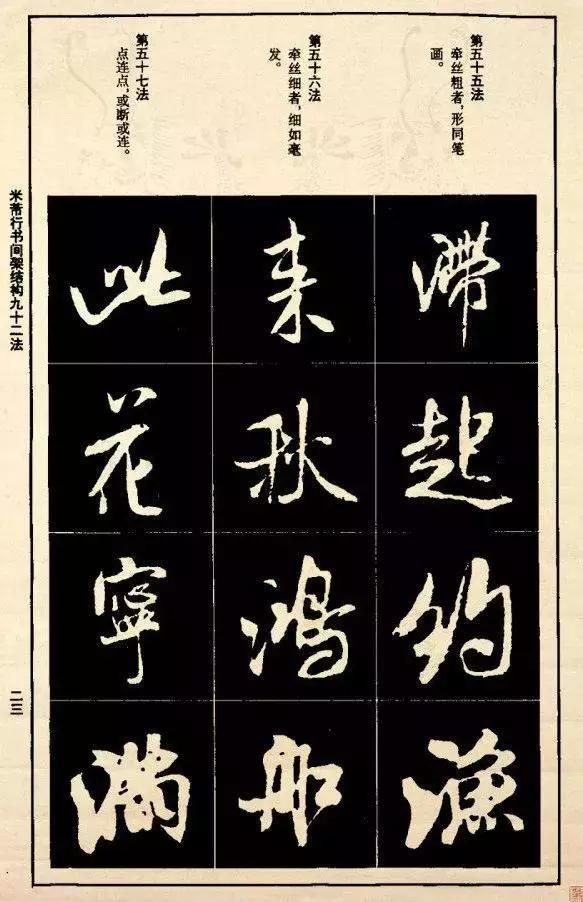 第五十五法
牵丝粗者，形同笔
画。
滞
起
约
渔
第五十六法
牵丝细者，细如毫
发。
来
秋
鸿
船
第五十七法
点连点，或断或连。
此
花
寧
满
米芾行书间架结构九十二法
二三